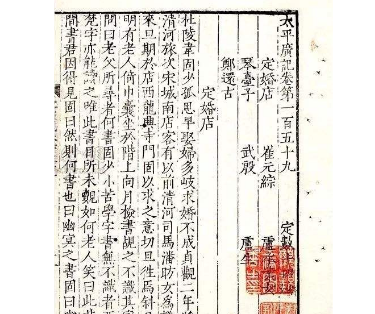 太平廣記卷第一百五十九
定數
定婚店 崔元綜 盧承業女
琴臺子 武殷 盧生
鄭還古
定婚店
杜陵韋固少孤思早娶婦多岐求婚不成貞觀二年
清河旅次宋城南店客有以前清河司馬潘昉女為議
來旦期於店西龍興寺門固以求之意切且往焉斜月
明有老人倚巾囊坐於階上向月檢書覘之不識其字
問曰老父所尋者何書固少小苦學字書無不識者西
梵字亦能讀之唯此書目所未覿如何老人笑曰此非
間書君因得見固曰然則何書也曰幽冥之書固曰幽